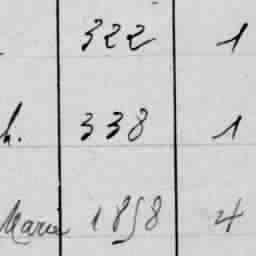 322 1
h. 338 1
Marie 1858 4